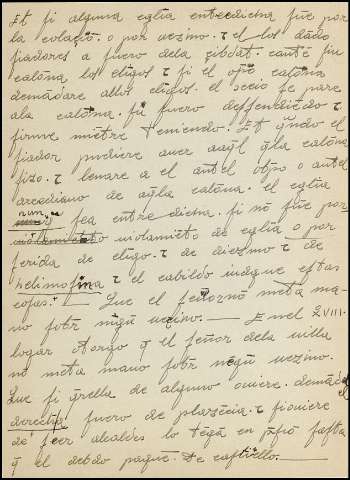 Et si alguna eglia entredicha fue por
la colaçio. o por uezino. τ el los dado
fiadores a fuero dela çibdat. cante su
caloña los cligos τ si el opo caloña
demadare allos cligos. el seCio se pare
ala caloña. su fuero deffendiedo τ
firme mietre teniendo. Et qñdo el
fiador pudiere auer aqyl q la caloña
fizo. τ leuare a el antel obpo o antel
arcediano de aqla caloña. el eglia
nunq sea entre dicha. si no fue por
uiolamieto de eglia o por
ferida de cligo. τ de diezmo τ de
helimosina τ el cabildo iudgue estas
cosas. — Que el señor no meta ma-
no sobr nigũ uezino. — Enel XVIII.
logar Atorgo q el señor dela uilla
no meta mano sobr negũ uezino.
Que si qrella de alguno ouiere. demãde el
derecho fuero de plazecia. τ si ouiere
de seer alcaldes lo tega en psio fasta
q el debdo pague. De castiello. —